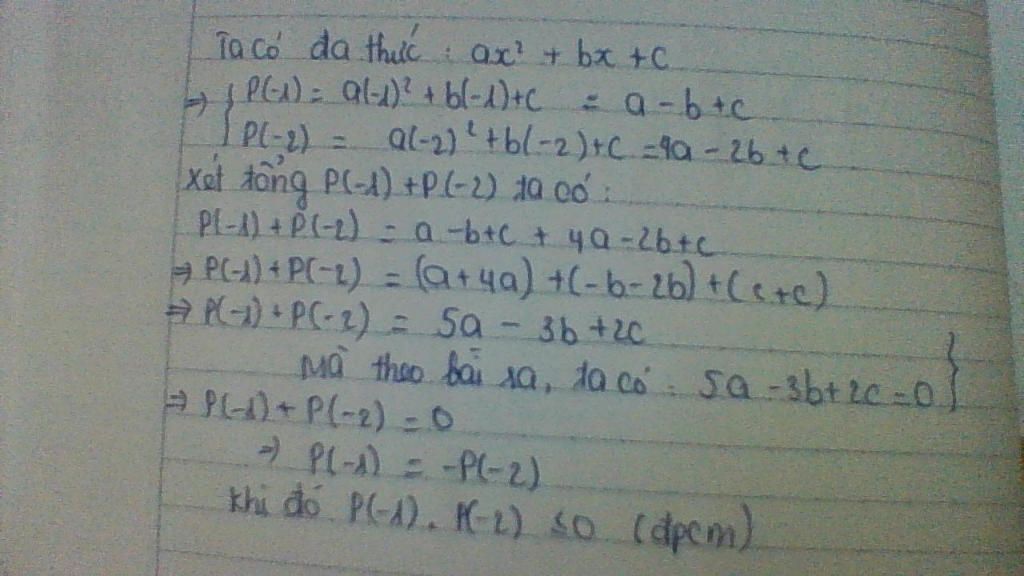 Ta có đa thức : ax² + bx + c
=> { P(-1) = a(-1)² + b(-1)+c = a - b + c
P(-2) = a(-2)² + b(-2)+c = 4a - 2b + c
Xét tổng P(-1) + P(-2) ta có :
P(-1) + P(-2) = a - b + c + 4a - 2b + c
=> P(-1) + P(-2) = (a + 4a) + (-b - 2b) + (c + c)
=> P(-1) + P(-2) = 5a - 3b + 2c
Mà theo bài ra, ta có : 5a - 3b + 2c = 0 }
=> P(-1) + P(-2) = 0
=> P(-1) = -P(-2)
Khi đó P(-1) . P(-2) ≤ 0 (đpcm)